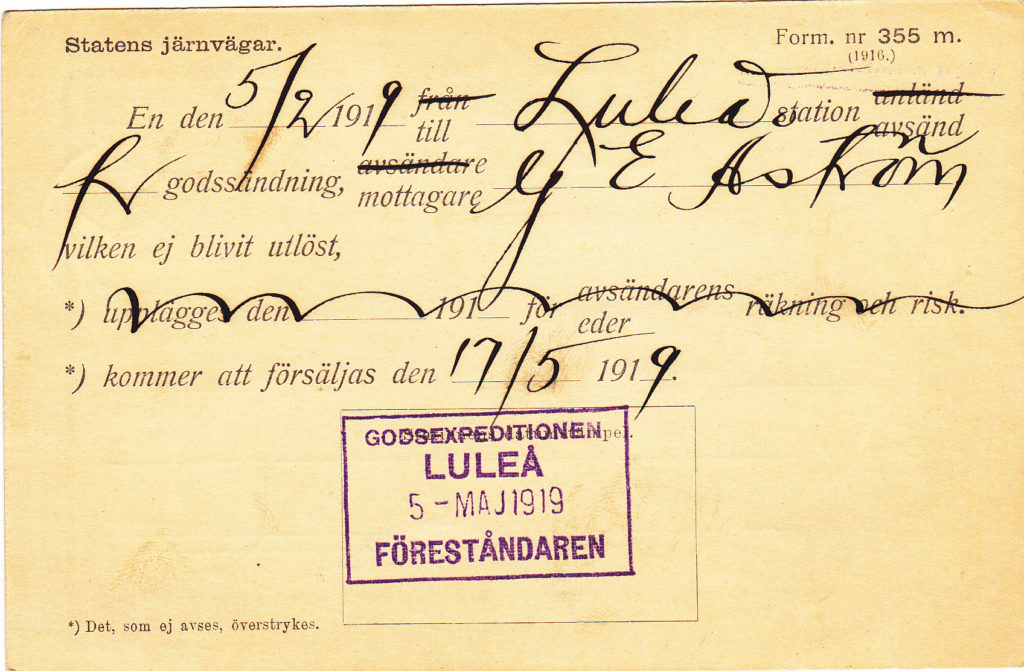 Statens järnvägar.
Form. nr 355 m.
(1916.)
En den 5/2 1919 från till Luleå station anländ avsänd
godssändning, avsändare mottagare G E Åström
vilken ej blivit utlöst,
*) upplägges den 191 för avsändarens eder räkning och risk.
*) kommer att försäljas den 17/5 1919.
GODSEXPEDITIONEN
LULEÅ
5 - MAJ 1919
FÖRESTÅNDAREN
*) Det, som ej avses, överstrykes.